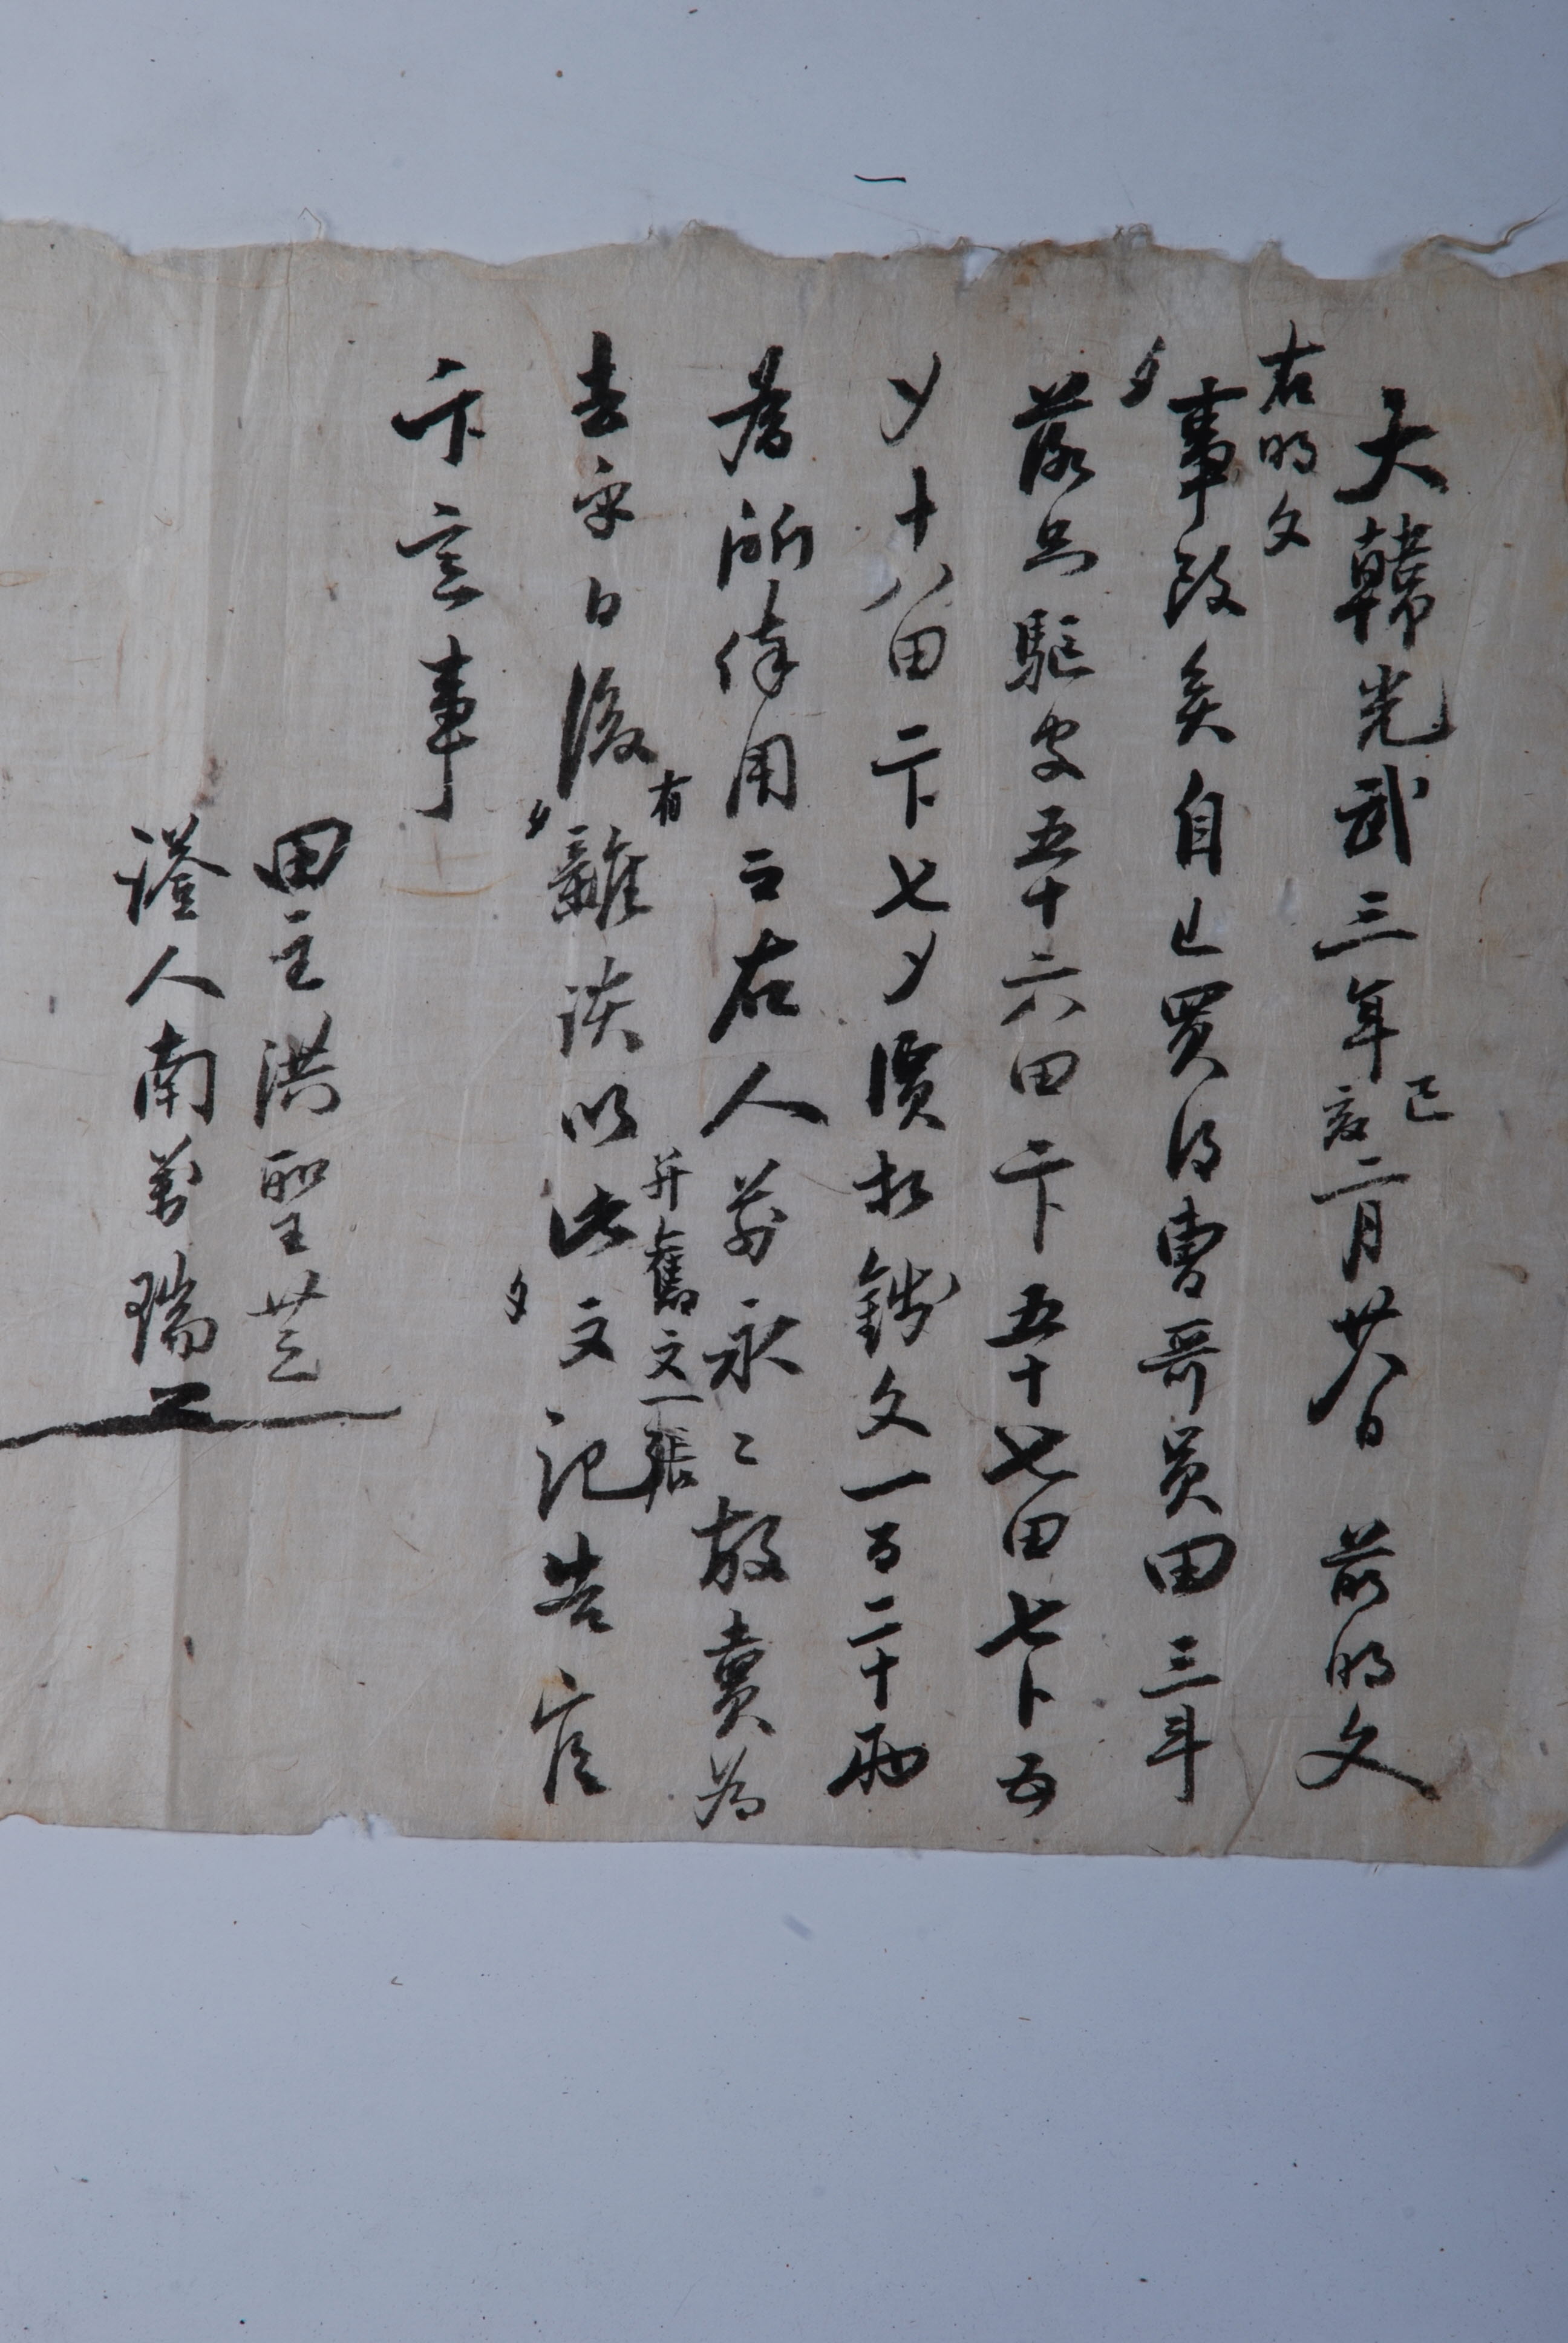 大韓光武三年己亥二月廿八日 前明文
右明文
事段矣自己買得曺哥員田三斗
落只駈字五十六田二卜五十七田七卜五
夕十八田二卜七夕價折錢文一百二十兩
所俸用云右人前永〻放賣為
去乎日後有雜談以此文記告官
并舊文一張
卞定事
田主洪聖芝
證人南萬瑞